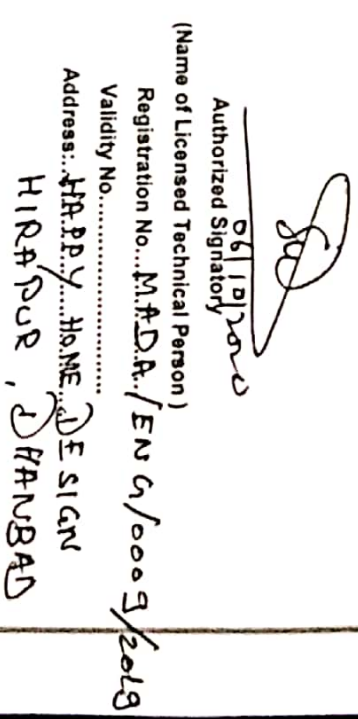 06/10/2020
Authorized Signatory
(Name of Licensed Technical Person)
Registration No...M.A.D.A./ENG/0009/2019
Validity No..............................
Address:..HAPPY...HOME..DESIGN
HIRAPUR, DHANBAD